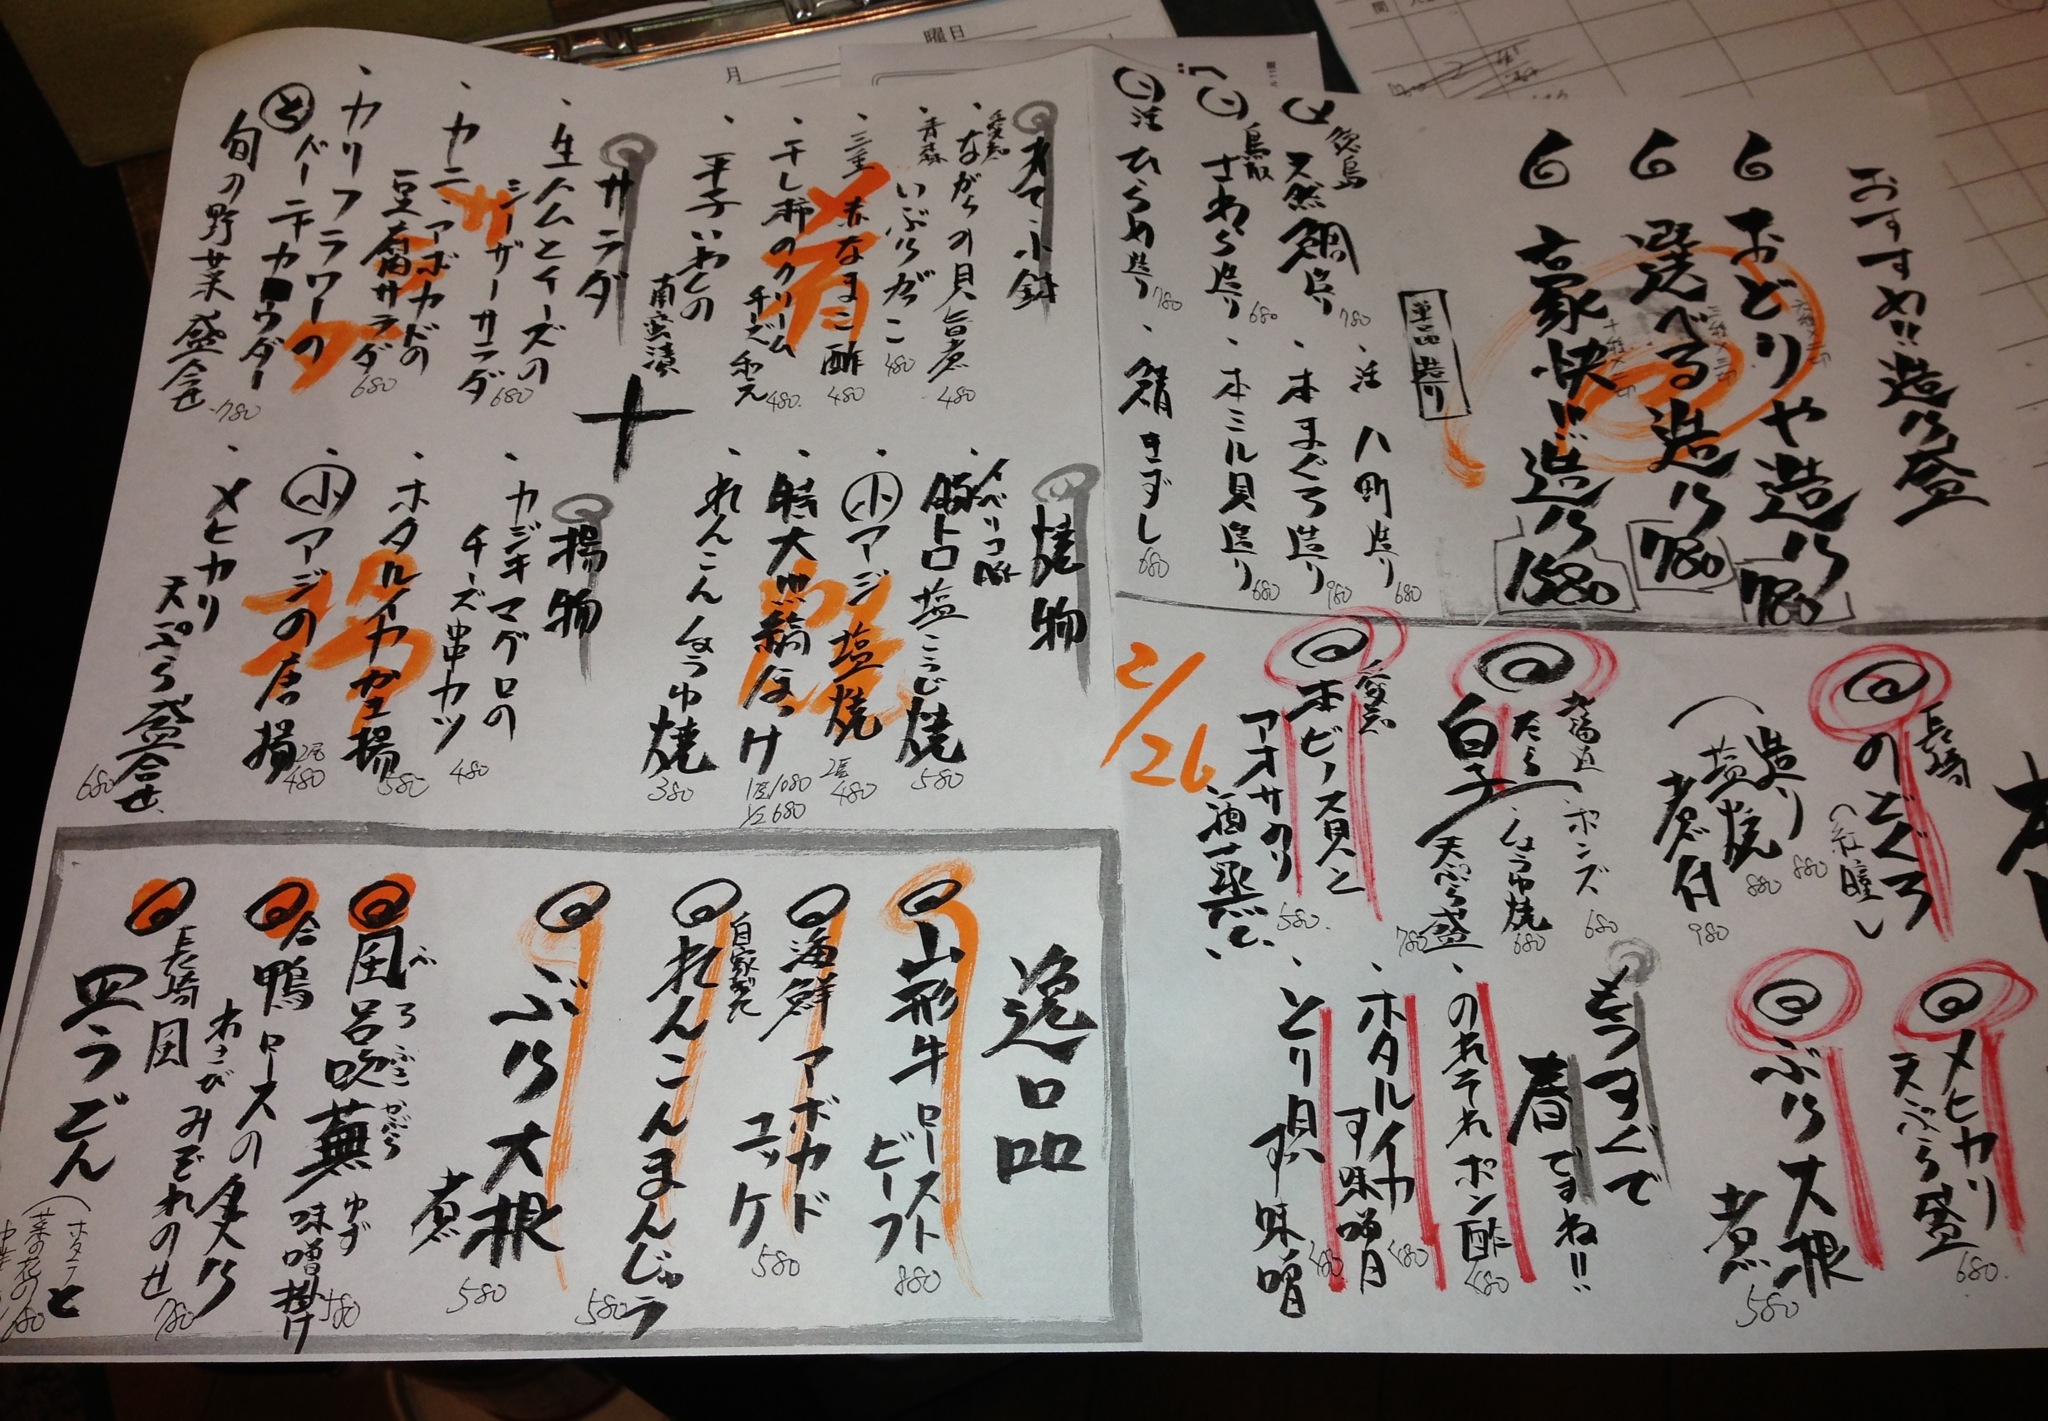 おすすめ!!造り盛
おどりや造り 780
選べる造り 780
豪快ド造り 1580
単品造り
徳島 天然鯛造り 780
鳥取 さわら造り 680
活 ひらめ造り 780
活 八町造り 680
本まぐろ造り 980
本ミル貝造り 680
鯖きずし 680
2/26
長崎 のどぐろ(紅瞳)
造り 880
塩焼 880
煮付 980
たら白子
ポンズ 680
しょうゆ焼 680
天ぷら盛 780
愛知 ホビノス貝と
アオサのり
酒蒸し 580
メヒカリ
天ぷら盛 680
ぶり大根
煮 580
もうすぐで
春ですね!!
のれそれポン酢 480
ホタルイカ
す味噌 480
とり貝
す味噌 480
あて小鉢
愛知 ながらの貝旨煮 480
青森 いぶりがっこ 480
三重 赤なまこ酢 480
干し柿のクリーム
チーズ和え 480
平子いわしの
南蛮漬
サラダ
生ハムとチーズの
シーザーサラダ 680
カニ、アボカドの
豆腐サラダ 680
カリフラワーの
バーニャカウダー
旬の野菜盛合せ 780
焼物
イベリコ豚
豚トロ塩こうじ焼 580
小アジ塩焼 2尾 480
特大縞ほっけ 1尾 1080
1/2 680
れんこんしょうゆ焼 380
揚物
カジキマグロの
チーズ串カツ 480
ホタルイカ唐揚 580
小アジの唐揚 2尾 480
メヒカリ
天ぷら盛合せ 680
逸品
山形牛ロースト
ビーフ 880
海鮮アボカド
ユッケ 580
自家製 れんこんまんじゅう 580
ぶり大根
煮 580
風呂吹蕪 ゆず味噌掛け 580
ぶろふきかぶら
合鴨ロースの炙り
わさびみぞれのせ 780
長崎風
皿うどん
ホタテと
菜の花の